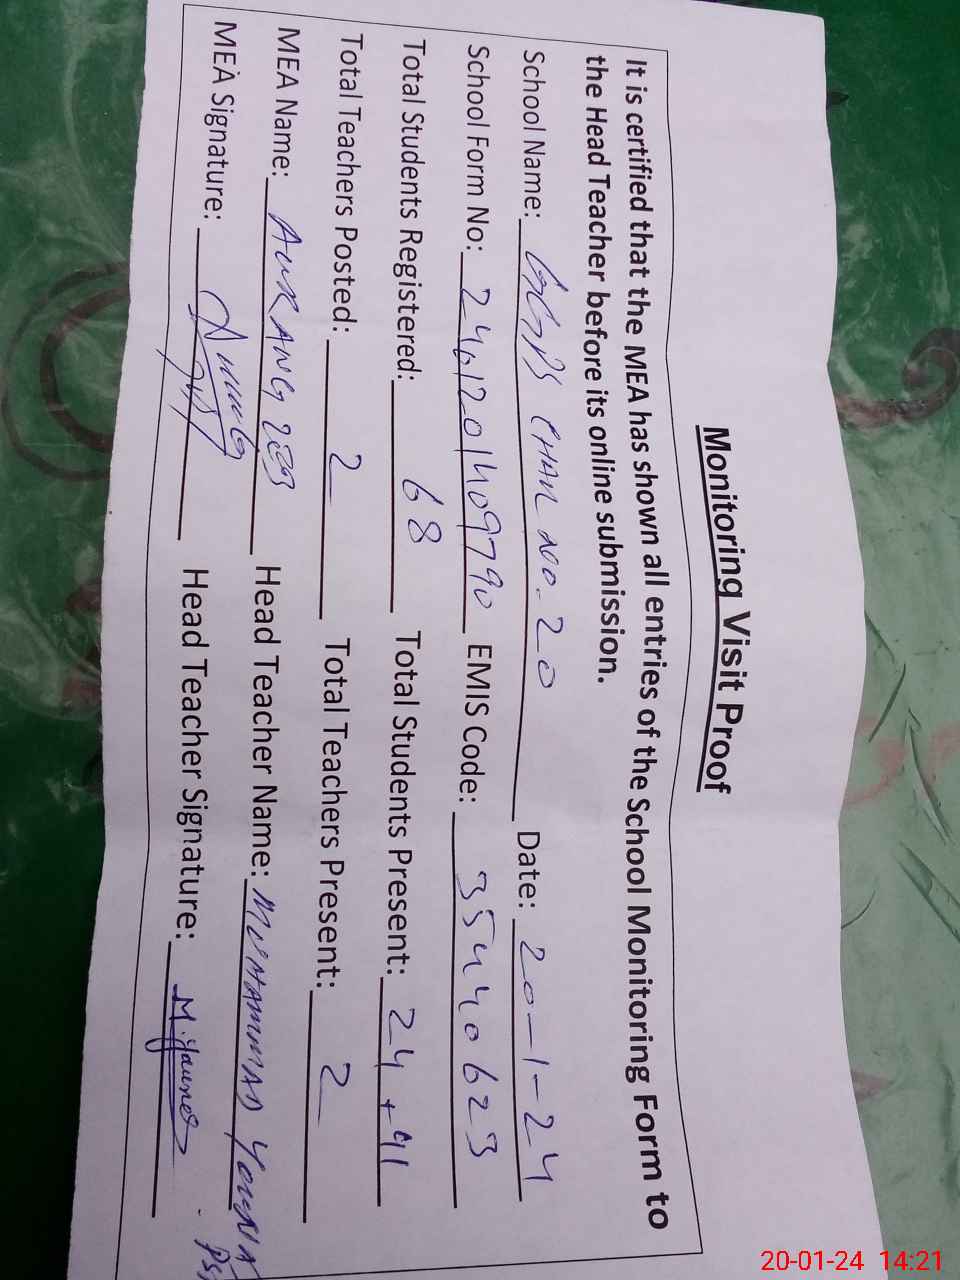 Monitoring Visit Proof
It is certified that the MEA has shown all entries of the School Monitoring Form to
the Head Teacher before its online submission.
School Name: GGPS CHAK NO. 20 Date: 20-1-24
School Form No: 2461201409790 EMIS Code: 35440623
Total Students Registered: 68 Total Students Present: 24+41
Total Teachers Posted: 2 Total Teachers Present: 2
MEA Name: AURANGZEB Head Teacher Name: MUHAMMAD YOUNAS
MEA Signature: Head Teacher Signature: M. Younas
20-01-24 14:21